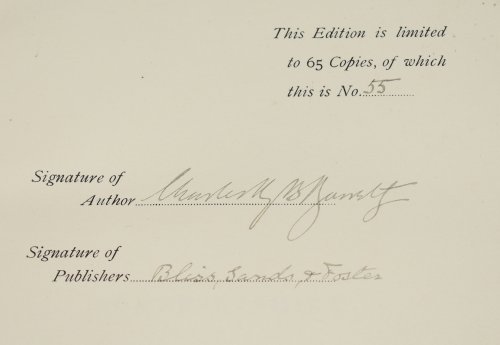 This Edition is limited
to 65 Copies, of which
this is No. 55
Signature of
Author Charles B Barrett
Signature of
Publishers Bliss, Sands, & Foster